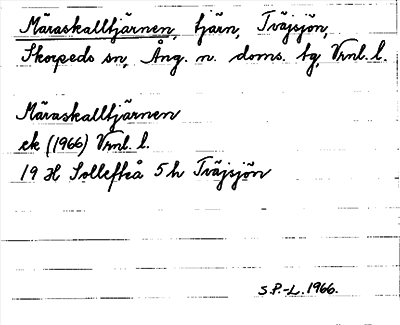 Märaskalltjärnen, tjärn, Tväjsjön,
Skorpeds sn, Ång. n. doms. tg, Vrnl. l.
Märaskalltjärnen
ek (1966) Vrnl. l.
19 H Sollefteå 5 h Tväjsjön
S.P.-L. 1966.